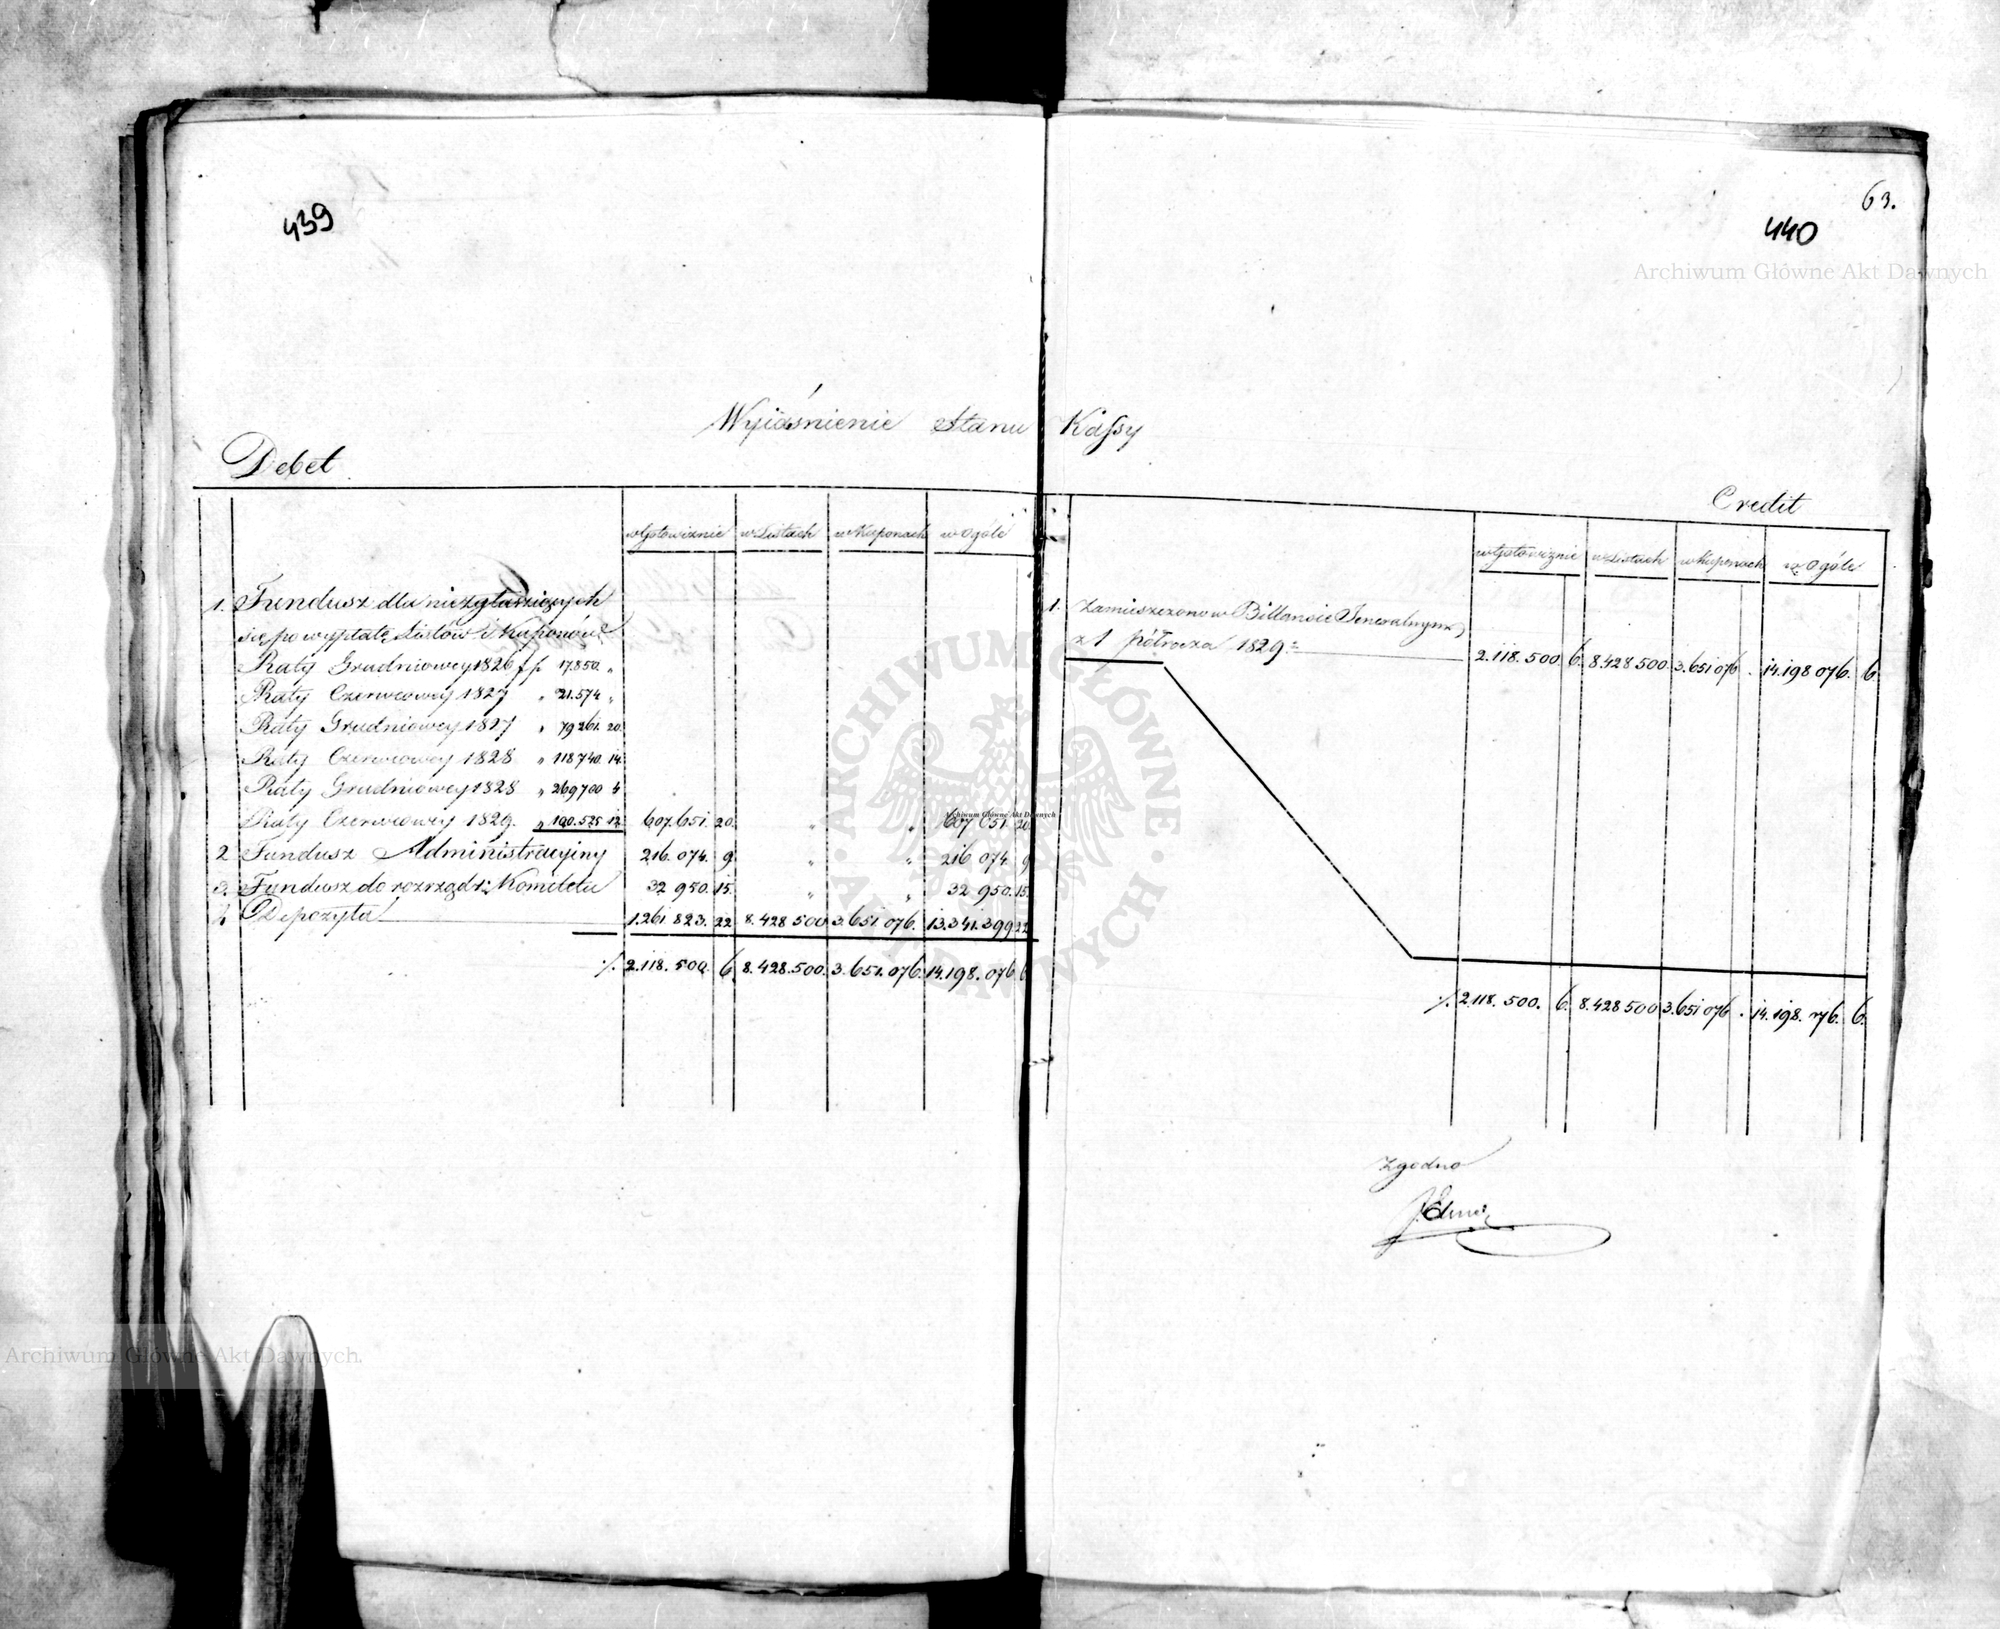 439
63.
440
Archiwum Główne Akt Dawnych
Wyiaśnienie Stanu Kassy
Debet
Credit
w Gotowiznie w Listach w Kuponach w Ogóle
w Gotowiznie w Listach w Kuponach w Ogóle
1. Fundusz dla niezgłaszaiących
się po wypłatę Listów i Kuponów
Raty Grudniowey 1826 f p 17.850 "
Raty Czerwcowey 1827 " 21.574 "
Raty Grudniowey 1827 " 79 261. 20.
Raty Czerwcowey 1828 " 118 740. 14.
Raty Grudniowey 1828 " 269 700 4
Raty Czerwcowey 1829. " 100.525 12. 607.651. 20. " " 607 651. 20
2 Fundusz Administracyiny 216.074. 9 " " 216 074. 9
3. Fundusz do rozrządz: Komitetu 32 950. 15. " " 32 950. 15.
4 Depozyta 1.261 823. 22 8.428 500 3.651 076. 13.341.399 22
./. 2.118.500. 6. 8.428.500. 3.651.076. 14.198.076 6
1. Zamieszczono w Billansie Generalnym
z 1 półrocza 1829 2.118.500 6. 8.428 500. 3.651 076 . 14.198 076. 6.
./. 2.118.500. 6. 8.428 500 3.651 076 . 14.198. 076. 6.
Zgodno
ARCHIWUM GŁÓWNE AKT DAWNYCH
Archiwum Główne Akt Dawnych
Archiwum Główne Akt Dawnych.